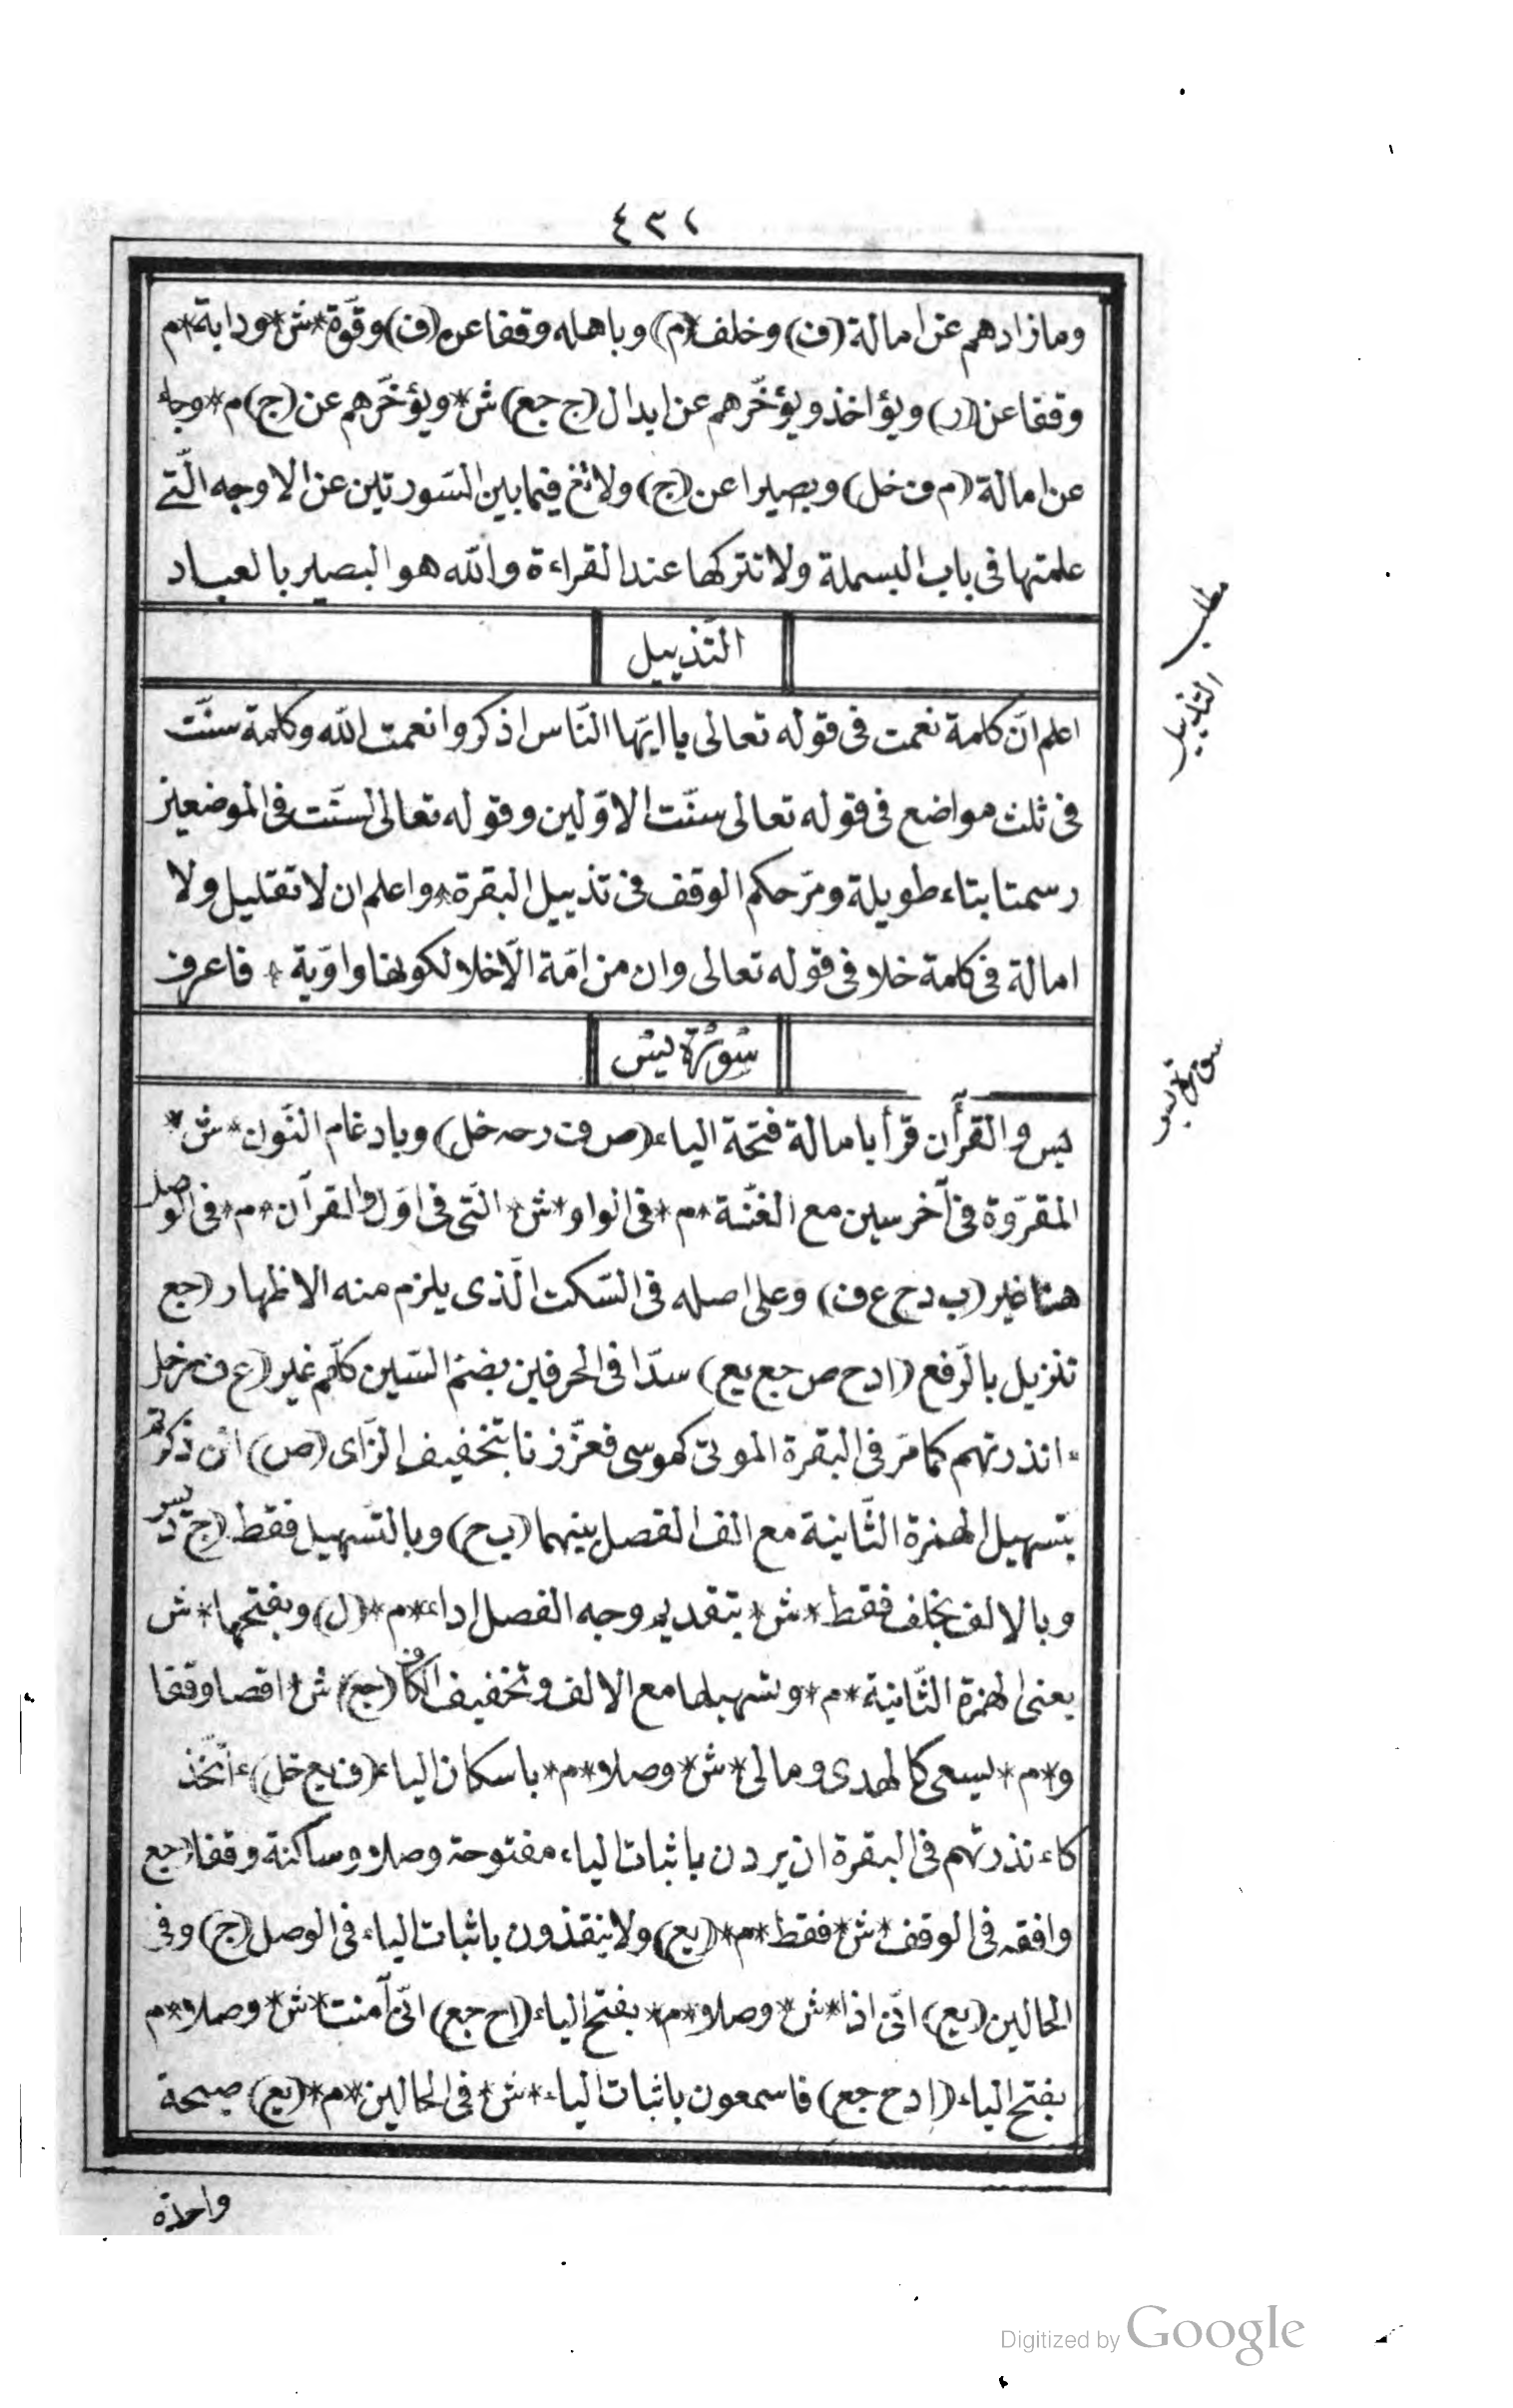 ٤٣٢
وما زادهم عن امالة (ف) وخلف (م) وباهله وقفا عن (ف) وقوّة *ش* ودابة *م
وقفا عن (ر) ويؤاخذ ويؤخّرهم عن ابدال (ج جع) ش* ويؤخّرهم عن (ج) م* وجاء
عن امالة (م ف خل) وبصيرا عن (ج) ولا تغ فيما بين السّورتين عن الاوجه الّتى
علمتها فى باب البسملة ولا تتركها عند القراءة والله هو البصير بالعباد
التّذييل
مطلب التذييل
اعلم انّ كلمة نعمت فى قوله تعالى يا ايّها النّاس اذكروا نعمت الله وكلمة سنّت
فى ثلث مواضع فى قوله تعالى سنّت الاوّلين وقوله تعالى لسنّت فى الموضعين
رسمتا بتاء طويلة ومرّ حكم الوقف فى تذييل البقرة * واعلم ان لا تقليل ولا
امالة فى كلمة خلا فى قوله تعالى وان من امّة الّا خلا لكونها واوّية * فاعرف
سورة يس
سورة يس
يس والقرآن قرأ بامالة فتحة الياء (ص ف ر حه خل) وبادغام النّون *ش*
المقروّة فى آخر سين مع الغنّة *م* فى الواو *ش* الّتى فى اوّل والقرآن *م* فى الوصل
هنا غير (ب د ح ع ف) وعلى اصله فى السّكت الّذى يلزم منه الاظهار (جع
تنزيل بالرّفع (ا د ح ص جع يع) سدّا فى الحرفين بضمّ السّين كلّهم غير (ع ف ر خل
ءانذرتهم كما مرّ فى البقرة الموتى كموسى فعزّزنا بتخفيف الزّاى (ص) ائن ذكرتم
بتسهيل الهمزة الثّانية مع الف الفصل بينهما (ب ح) وبالتّسهيل فقط (ج د يس
وبالالف بخلف فقط *ش* بتقديم وجه الفصل اداء *م* (ل) وبفتحها *ش
يعنى الهمزة الثّانية *م* وتسهيلها مع الالف وتخفيف الكاف (جع) ش* اقصا وقفا
و*م* يسعى كالهدى وما لى *ش* وصلا *م* باسكان الياء (ف يع خل) ءاتّخذ
كاءنذرتهم فى البقرة ان يردن باثبات الياء مفتوحة وصلا وساكنة وقفا (جع
وافقه فى الوقف *ش* فقط *م* (يع) ولا ينقذون باثبات الياء فى الوصل (ج) وفى
الحالين (يع) انّى اذا *ش* وصلا *م* بفتح الياء (ا ح جع) انّى آمنت *ش* وصلا *م
بفتح الياء (ا د ح جع) فاسمعون باثبات الياء *ش* فى الحالين *م* (يع) صيحة
واحدة
Digitized by Google